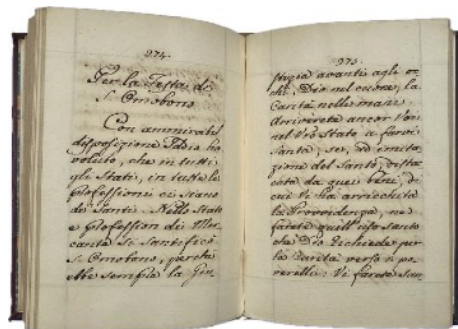 274.
Per la Festa di
S. Omobono
Con ammirabil
disposizione Iddio ha
voluto, che in tutti
gli Stati, in tutte le
professioni ci siano
de' Santi. Nello Stato
e professione di Mer
canta si santificò
S. Omobono, perchè
ebbe sempre la Giu-
275.
stizia avanti agli oc-
chi, Dio nel cuore, la
Carità nelle mani.
Arriverete ancor Voi
nel Vrō Stato a farvi
Santi, se, ad imita
zione del Santo, distac
cata da quei beni, di
cui Vi ha arricchita
la Providenza, ne
farete quell'uso santo
che Dio richiede per
la Carità verso i po
verelli: Vi farete San-